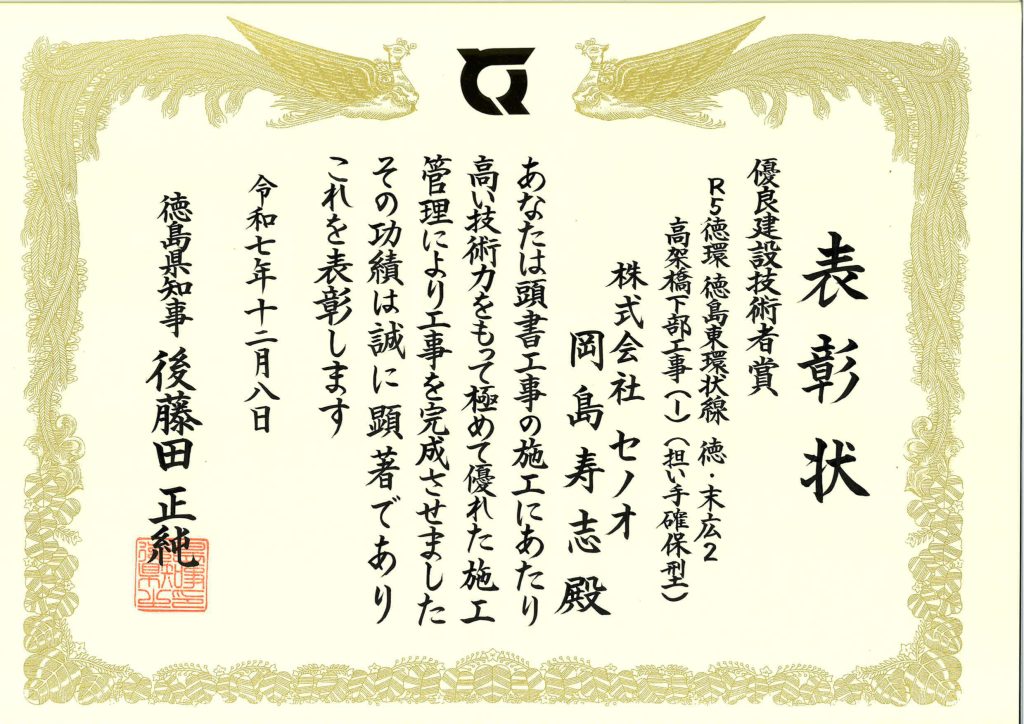 表彰状
優良建設技術者賞
R5徳環 徳島東環状線 徳・末広2
高架橋下部工事(1)(担い手確保型)
株式会社 セノオ
岡島寿志 殿
あなたは頭書工事の施工にあたり
高い技術力をもって極めて優れた施工
管理により工事を完成させました
その功績は誠に顕著であり
これを表彰します
令和七年十二月八日
徳島県知事 後藤田 正純